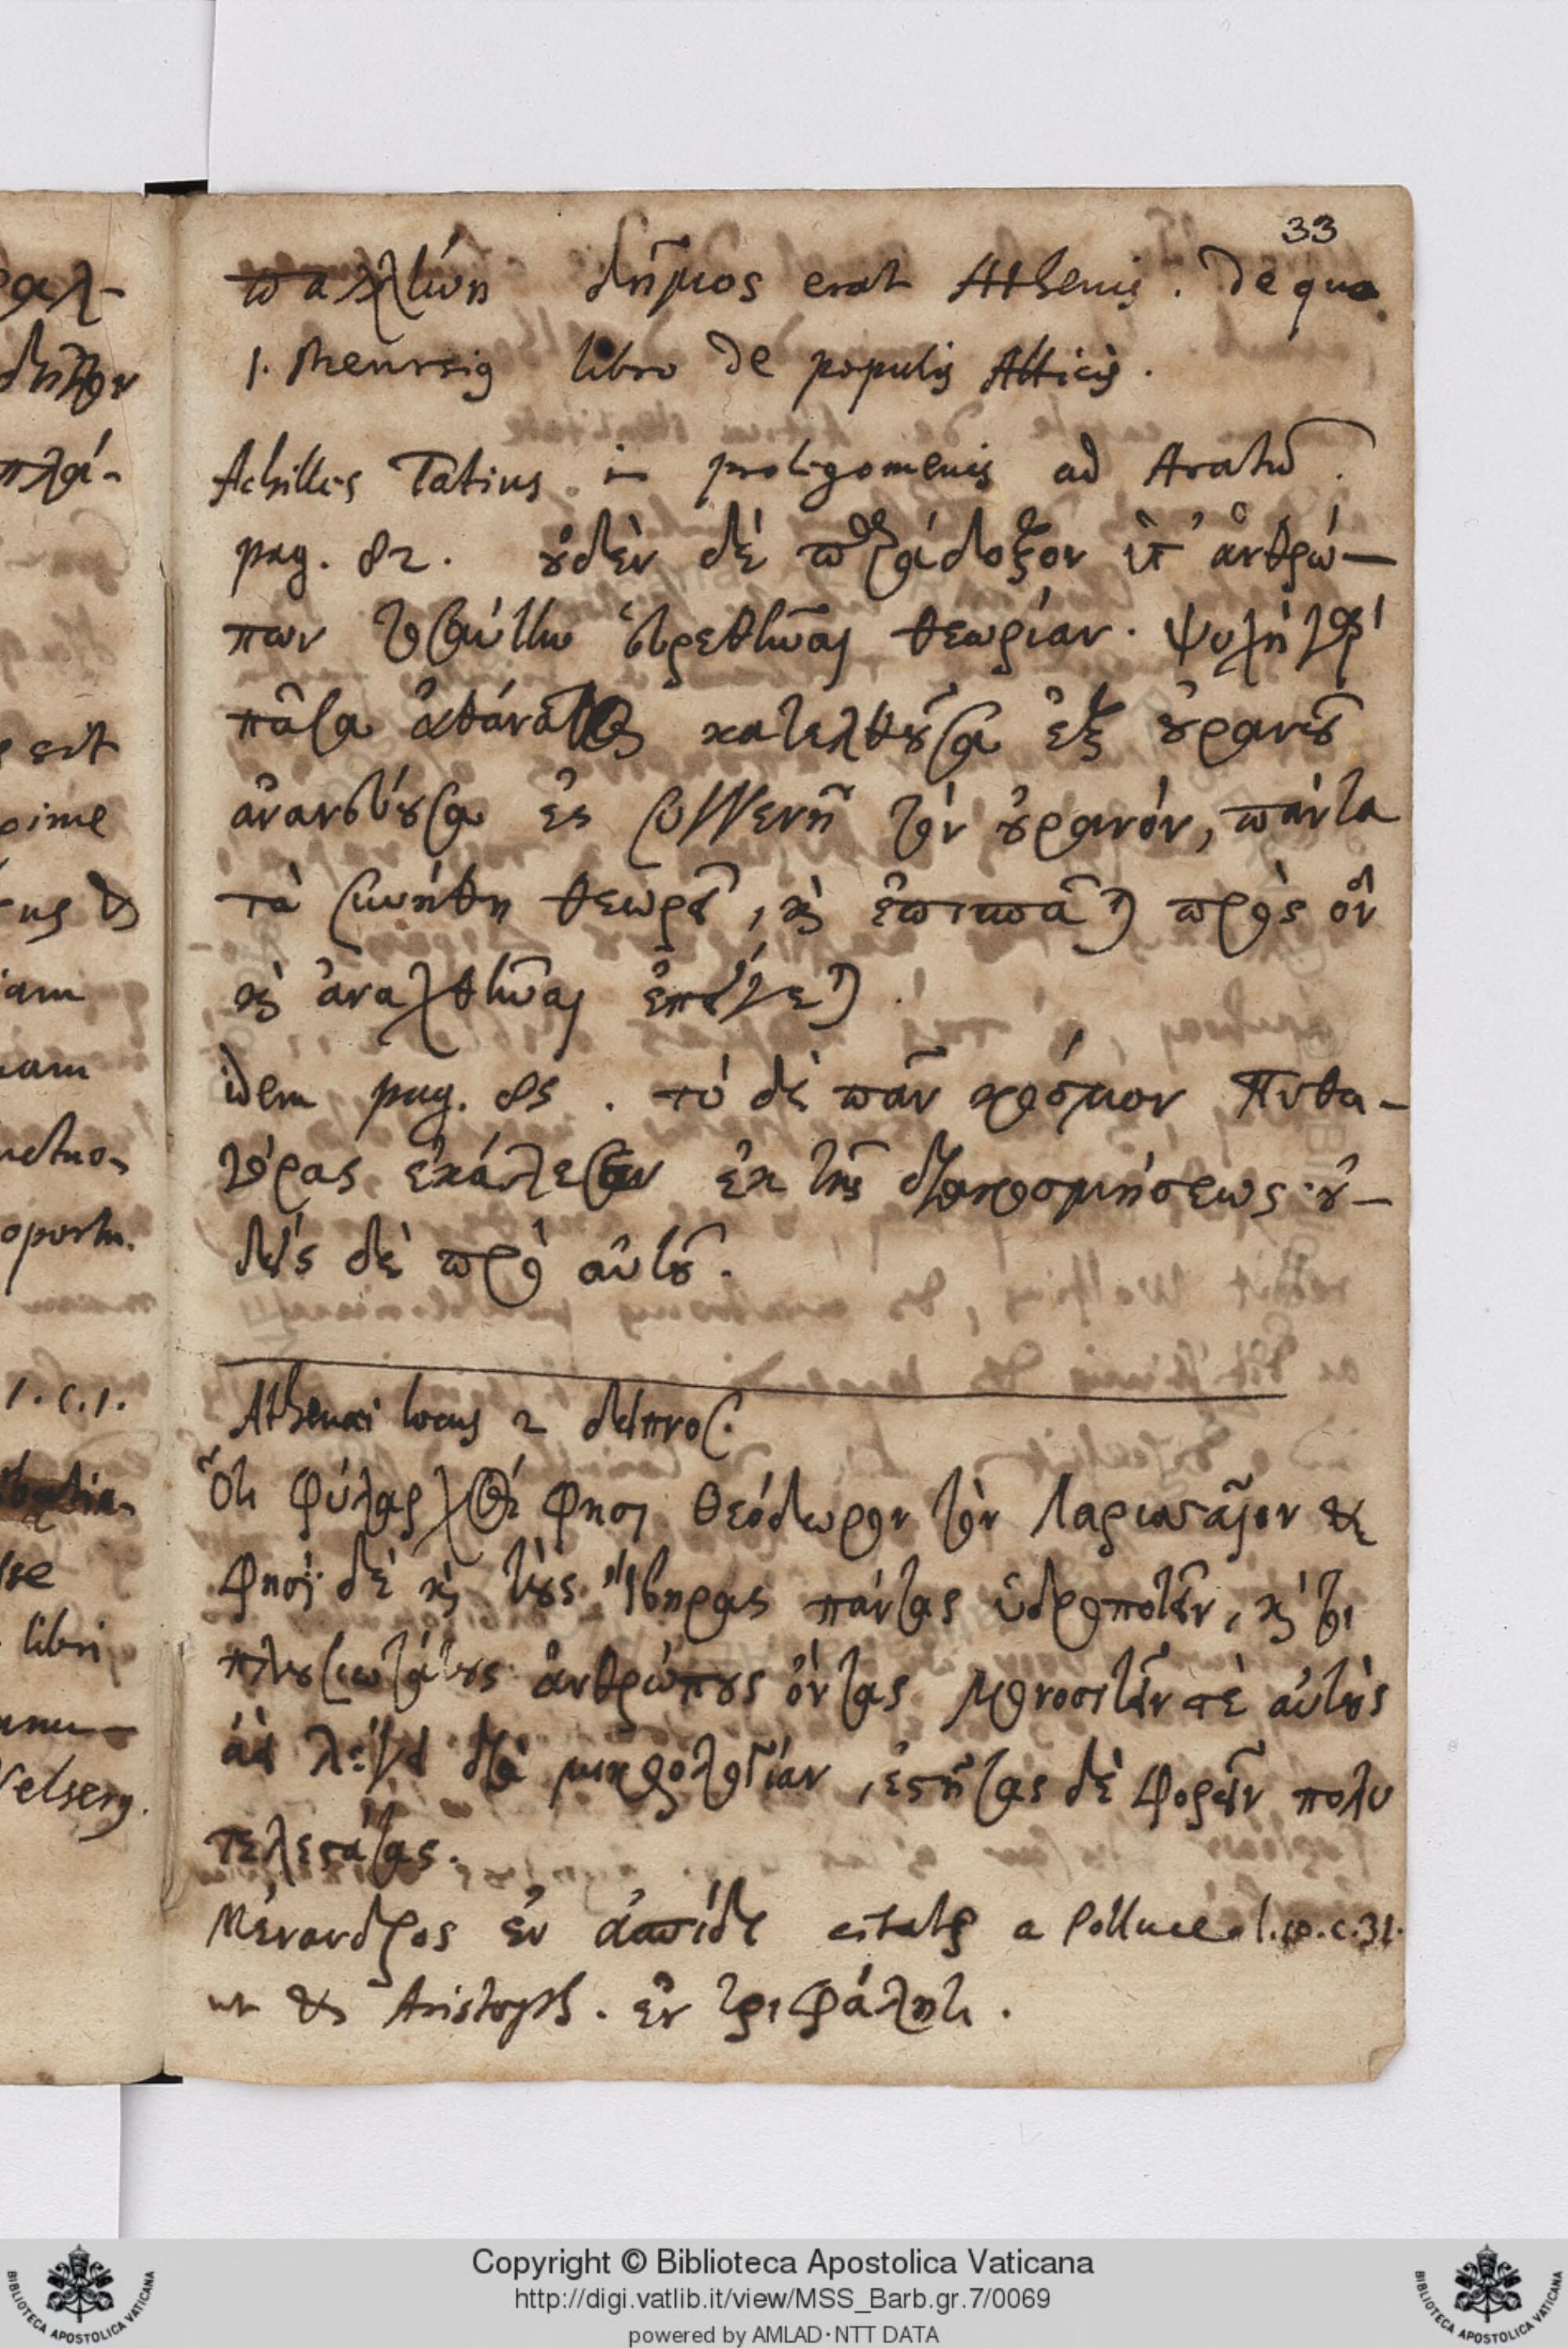 33
δῆμος erat Athenis. De quo
I. Meursiꝰ libro De populis Atticis.
Achilles Tatius in prolegomenis ad Aratũ.
pag. 82. οὐδὲν δὲ παράδοξον ὑπ' ἀνθρώ-
πων τοιαύτην εὑρεθῆναι θεωρίαν. ψυχὴ γὰρ
πᾶσα ἀθάνατος κατελθοῦσα ἐξ οὐρανοῦ
ἐς συγγενῆ τὸν οὐρανόν, πάντα
τὰ συνήθη θεωρεῖ, καὶ πρὸς ὃν
καὶ ἀναχθῆναι ἐπείγεται.
idem pag. 85. τὸ δὲ πᾶν κόσμον Πυθα-
γόρας ἐκάλεσεν ἐκ τῆς διακοσμήσεως· οὐ-
δεὶς δὲ πρὸ αὐτοῦ.
Athenaei locus 2 δειπνοσ.
Ὅτι φύλαρχός φησι Θεόδωρον τὸν Λαρισσαῖον &
φησὶ δὲ καὶ τοὺς Ἴβηρας πάντας ὑδροποτεῖν, καί τοι
πλουσιωτάτους ἀνθρώπους ὄντας μονοσιτεῖν τε αὐτοὺς
ἀεὶ λέγει διὰ μικρολογίαν, ἐσθῆτας δὲ φορεῖν πολυ
τελεστάτας.
Μένανδρος ἐν ἀσπίδι citatꝰ a Polluce l.10.c.31.
ut & Aristoph. ἐν τριφάλητι.
Copyright © Biblioteca Apostolica Vaticana
http://digi.vatlib.it/view/MSS_Barb.gr.7/0069
powered by AMLAD·NTT DATA
BIBLIOTECA APOSTOLICA VATICANA
BIBLIOTECA APOSTOLICA VATICANA